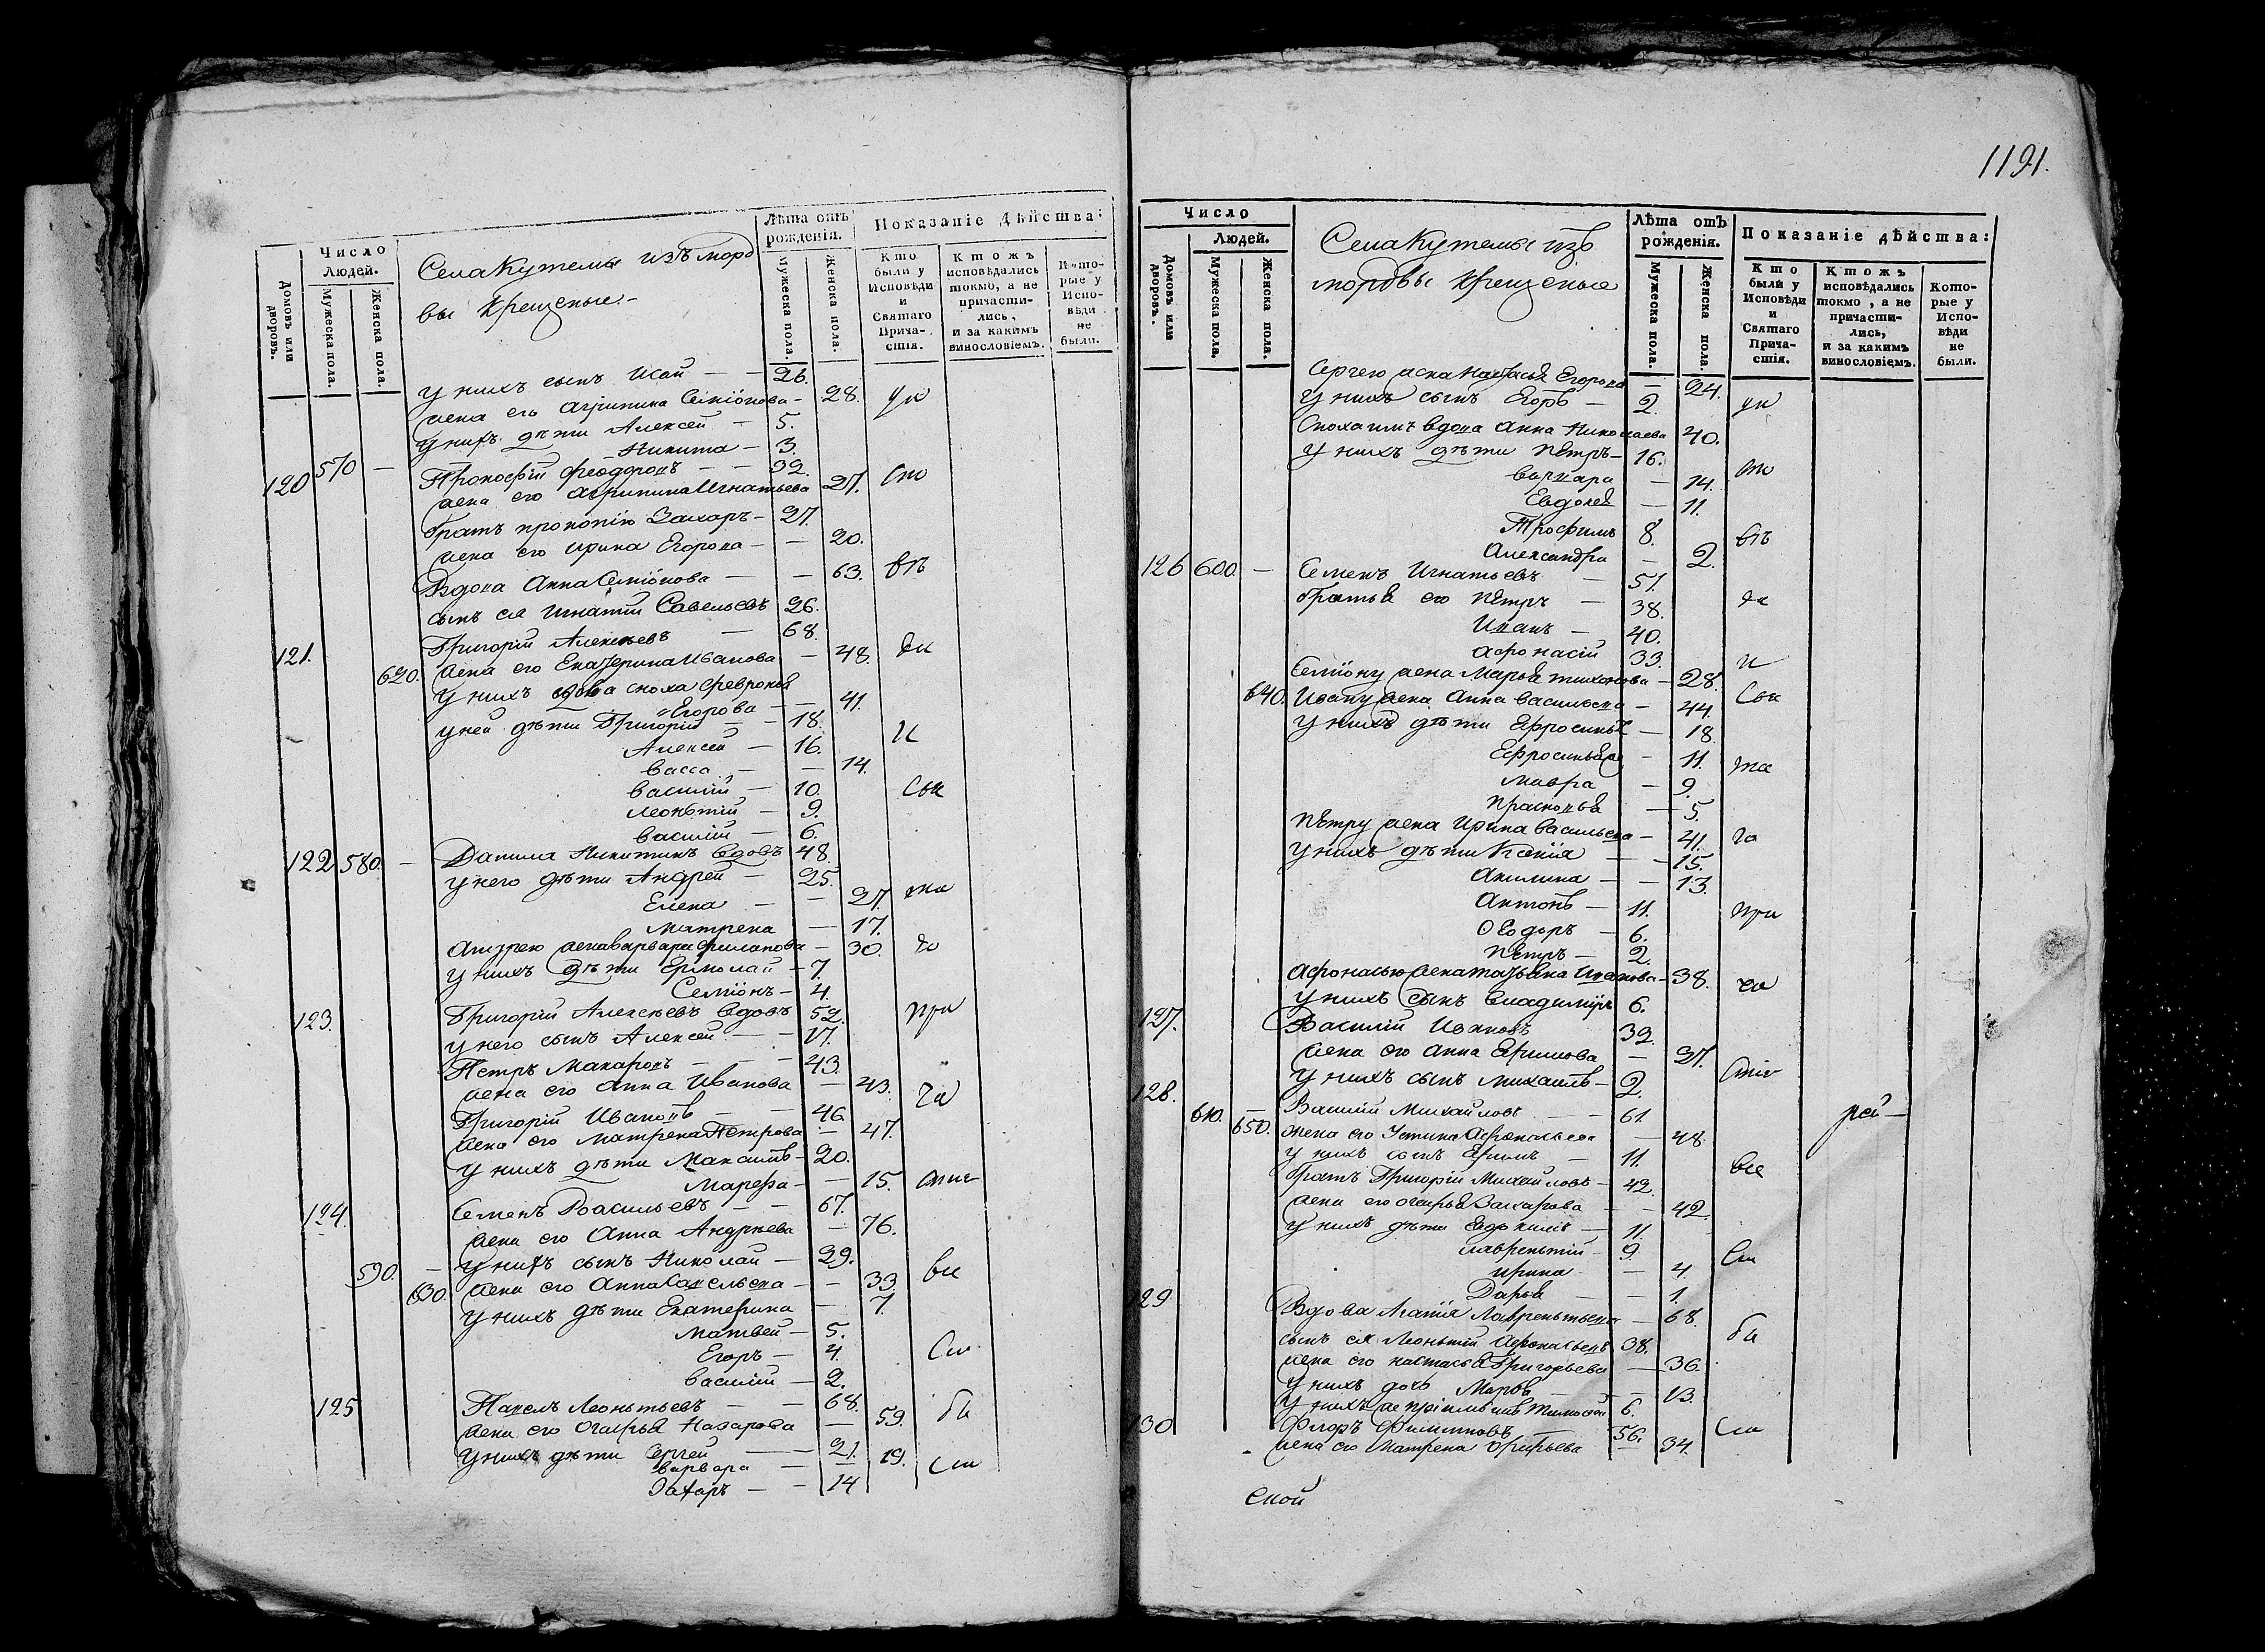 Число
Людей.
Домовъ или дворовъ.
Мужеска пола.
Женска пола.
Села Кутемы изъ морд
вы крещеные. -
Лѣта отъ рожденія.
Мужеска пола.
Женска пола.
Показаніе дѣйства:
Кто были у Исповѣди и Святаго Прича-стія.
Ктожъ исповѣдались токмо, а не причасти-лись, и за какимъ винословіемъ.
Кото-рые у Испо-вѣди не были.
у нихъ сынъ Исай — — 26.
жена его Агрипина Семіонова — 28. ук
у нихъ дѣти Алексей — 5.
570 — Никита — 3.
120 Прокофій Феодоровъ — — 32.
жена его Агрипина Игнатьева 27.
братъ прокопію Захаръ — 27.
жена его Ирина Егорова — — 20.
Вдова Анна Семіонова — — 63. въ
сынъ ея Игнатій Савельевъ 26.
121. Григорій Алексеевъ — 68.
620. жена его Екатерина Иванова — 48.
у нихъ вдова сноха Февронья
Егорова — — 41.
у ней дѣти Григорій — — 18. И
Алексей — 16.
Васса — — 14.
василій — 10.
Леонътій — 9.
василій — 6.
122 580. — Данила Никитинъ вдовъ 48.
у него дѣти Андрей — 25.
Елена — — 27.
Матрена — 17.
Андрею жена варвара Филапова — 30.
у нихъ дѣти Ермолай — 7.
Семіонъ — 4.
123. Григорій Алексеевъ вдовъ 52. при
у него сынъ Алексей — 17.
Петръ Макаровъ — — — 43.
жена его Анна Иванова — 43. ча
Григорій Ивановъ — — 46
жена его Матрена Петрова — 47.
у нихъ дѣти Максимъ — 20.
Марефа — — 15.
124. Семенъ Васильевъ — — 67.
жена его Анна Андреева — 76.
590. — у нихъ сынъ Николай — 29.
630. жена его Анна Савельева — — 33. вы
у нихъ дѣти Екатерина — 7
Матвей — 5.
Егоръ — 4.
василій — 2.
125 Павелъ Леонътьевъ — — 68.
жена его Огафья Назарова — 59. ба
у нихъ дѣти Сергей — — 21.
варвара — 19.
Захаръ — — 14
1191.
Число
Людей.
Домовъ или дворовъ.
Мужеска пола.
Женска пола.
Села Кутемы изъ
мордвы крещеные
Лѣта отъ рожденія.
Мужеска пола.
Женска пола.
Показаніе дѣйства:
Кто были у Исповѣди и Святаго Прича-стія.
Ктожъ исповѣдались токмо, а не причасти-лись, и за какимъ винословіемъ.
Кото-рые у Испо-вѣди не были.
Сергею жена Настасья Егорова — 24.
у нихъ сынъ Егоръ — 2. ук
Сноха имъ вдова Анна Николаева 40.
у нихъ дѣти Петръ — 16.
варвара — 14.
Евдокея — 11.
Трофимъ 8. въ
Александра — 2.
126 600. — Семенъ Игнатьевъ — 51.
братья его Петръ — 38.
Иванъ — 40.
Афонасій 33. И
Семіону жена Марья тихонова — 28.
640. Ивану жена Анна васильева — 44.
у нихъ дѣти Ефросинья — 18.
Ефросинья — 11.
Мавра — 9.
Прасковья — 5.
Петру жена Ирина васильева — 41. ча
у нихъ дѣти Ксенія — — 15.
Акилина — — 13.
Антонъ — 11. при
Ѳеодоръ — 6.
Петръ — 2.
Афонасью жена татьяна Иванова — 38.
у нихъ сынъ владимиръ 6.
127. Василій Ивановъ 32.
жена его Анна Ефимова — 27.
у нихъ сынъ михаилъ — 2.
128. 610. — Василій Михайловъ — — 61.
650. жена его Устина Афонасьева — 48.
у нихъ сынъ Ефимъ — 11.
братъ Григорій Михайловъ — 42.
жена его огафья Захарова — — 42.
у нихъ дѣти Евдокимъ — 11.
Лавренътій — 9.
Ирина — — 4.
Дарья — — 1.
129 Вдова Агапія Лавренътьева — 68.
сынъ ея Леонътій Афонасьевъ 38. ба
жена его настасья Григорьева — 36.
у нихъ дочь Марья — — 13.
у нихъ же пріимышъ Тимофей 6.
130 Флоръ Филиповъ — 56.
жена его Матрена — 34.
ской